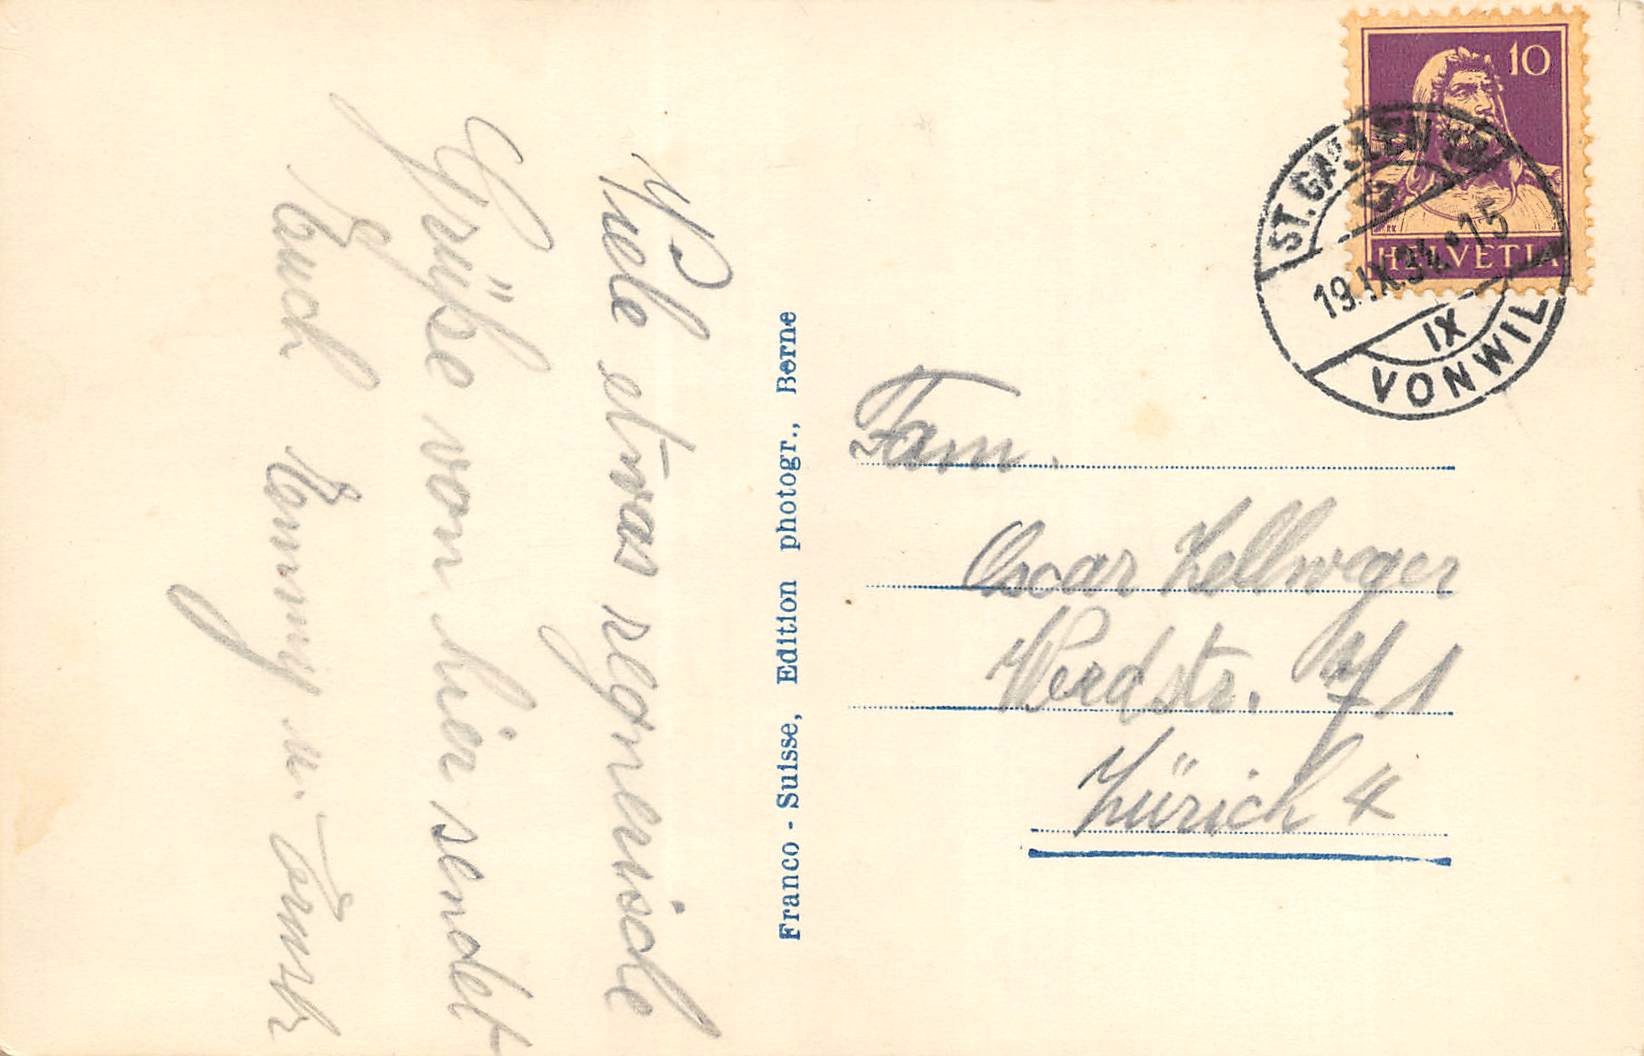 Viele etwas regnerische
Grüße von hier sendet
Euch Emmy u. Ernst
Franco - Suisse, Edition photogr., Berne
10
HELVETIA
ST. GALLEN
19.IX.34.15
IX
VONWIL
Fam.
Oscar Zellweger
Werdstr.
Zürich 4